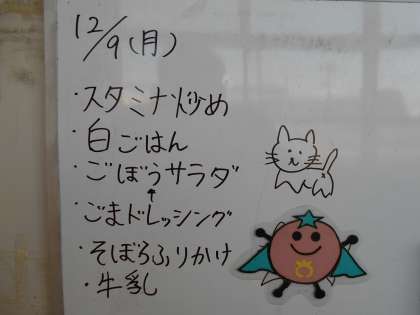 12/9(月)
・スタミナ炒め
・白ごはん
・ごぼうサラダ
↑
・ごまドレッシング
・そぼろふりかけ
・牛乳